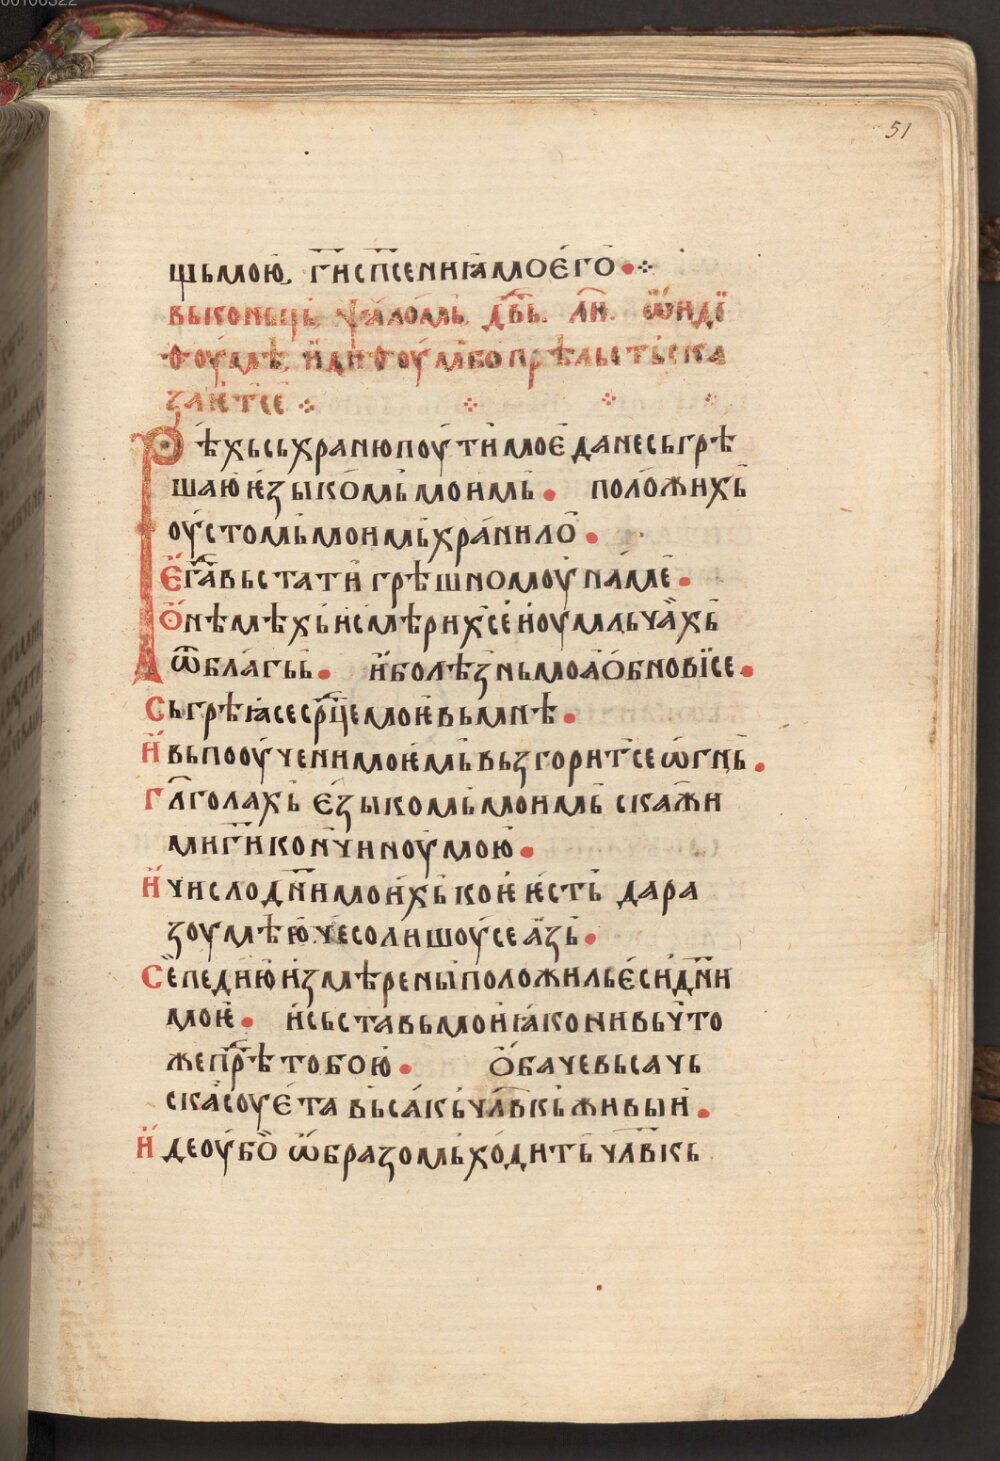 51
щьмою, г҃и сп҃сениꙗ моѥго
вьконьць, ѱаломь, дв҃ь. лн҃. ѿ идї
ѳоумѣ, идиѳоумь бо прѣльсть ска
заѥт се
Рѣхь сьхраню поути моѥ да не сьгрѣ
шаю ѥзыкомь моимь. положихь
оустомь моимь хранило.
Ѥгда вьстати грѣшномоу на ме.
Онѣмѣхь и смѣрих се и оумльчахь
ѿ благыь. и болѣзнь моꙗ обнови се.
Сьгрѣꙗ се ср҃це моѥ вь мнѣ.
И вь пооучени моѥмь вьзгорит се ѡгнь.
Гл҃голахь ѥзыкомь моимь скажи
ми г҃и кончиноу мою.
И число дн҃и моихь коѥ ѥсть да ра
зоумѣю чесо лишоу се азь.
Се педию измѣрены положиль ѥси дн҃и
моѥ. и сьставь мои ꙗко ничьто
же прѣ тобою. Обаче вьсачь
скаꙗ соуѥта вьсакь чл҃вкь живыи.
И де оубо ѡбразомь ходить чл҃вкь